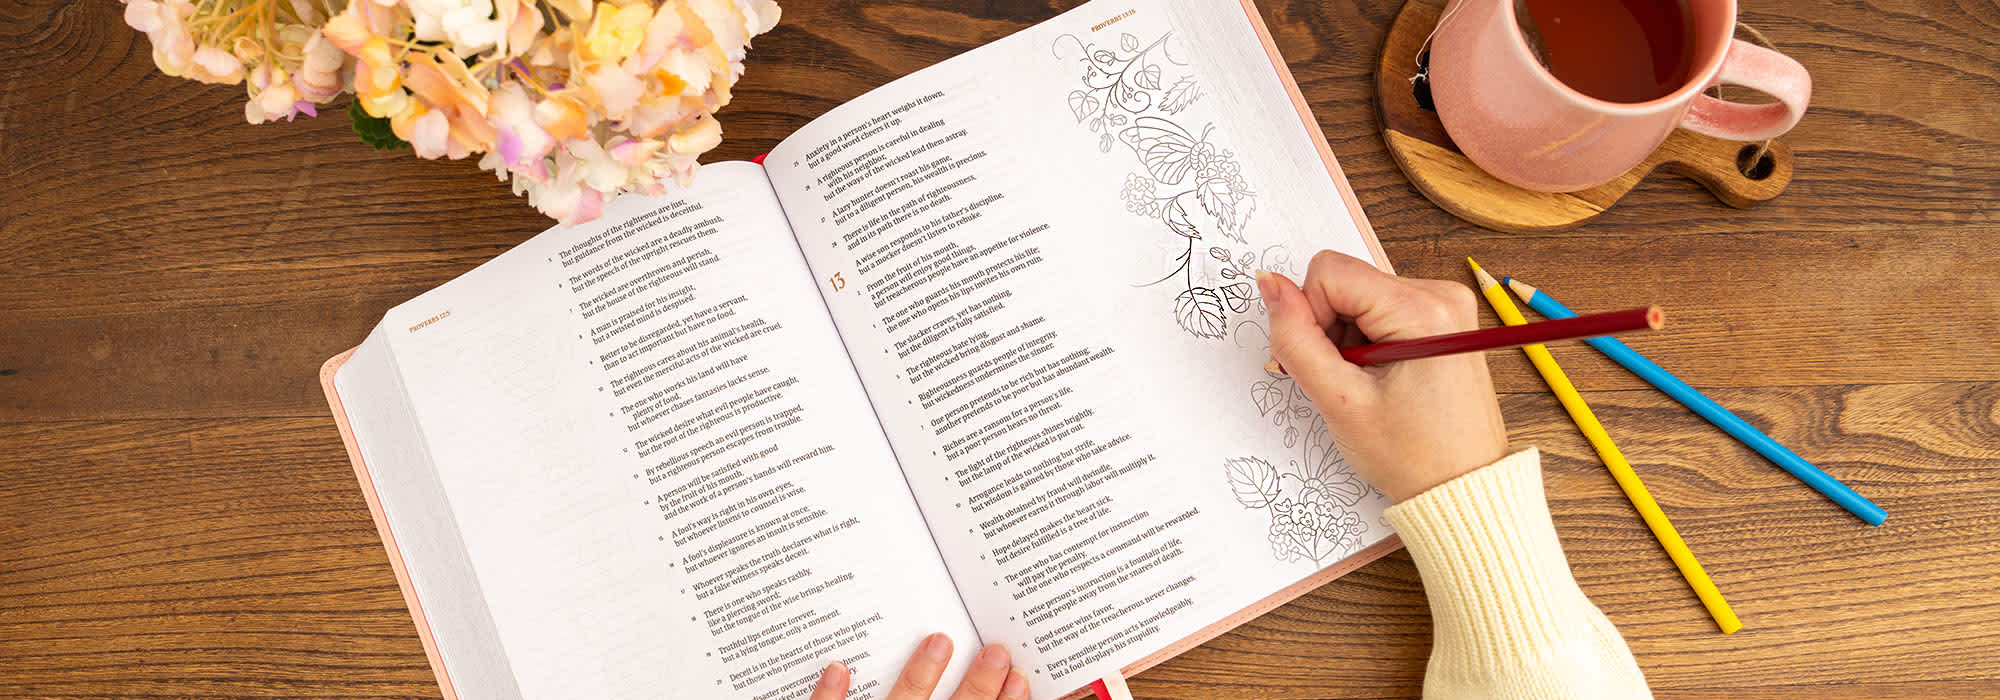 PROVERBS 12:5
5 The thoughts of the righteous are just,
but guidance from the wicked is deceitful.
6 The words of the wicked are a deadly ambush,
but the speech of the upright rescues them.
7 The wicked are overthrown and perish,
but the house of the righteous will stand.
8 A man is praised for his insight,
but a twisted mind is despised.
9 Better to be disregarded, yet have a servant,
than to act important but have no food.
10 The righteous cares about his animal's health,
but even the merciful acts of the wicked are cruel.
11 The one who works his land will have
plenty of food,
but whoever chases fantasies lacks sense.
12 The wicked desire what evil people have caught,
but the root of the righteous is productive.
13 By rebellious speech an evil person is trapped,
but a righteous person escapes from trouble.
14 A person will be satisfied with good
by the fruit of his mouth,
and the work of a person's hands will reward him.
15 A fool's way is right in his own eyes,
but whoever listens to counsel is wise.
16 A fool's displeasure is known at once,
but whoever ignores an insult is sensible.
17 Whoever speaks the truth declares what is right,
but a false witness speaks deceit.
18 There is one who speaks rashly,
like a piercing sword;
but the tongue of the wise brings healing.
19 Truthful lips endure forever,
but a lying tongue, only a moment.
20 Deceit is in the hearts of those who plot evil,
but those who promote peace have joy.
disaster overcomes the righteous,
the LORD,
PROVERBS 13:16
25 Anxiety in a person's heart weighs it down,
but a good word cheers it up.
26 A righteous person is careful in dealing
with his neighbor,
but the ways of the wicked lead them astray.
27 A lazy hunter doesn't roast his game,
but to a diligent person, his wealth is precious.
28 There is life in the path of righteousness,
and in its path there is no death.
13 A wise son responds to his father's discipline,
but a mocker doesn't listen to rebuke.
2 From the fruit of his mouth,
a person will enjoy good things,
but treacherous people have an appetite for violence.
3 The one who guards his mouth protects his life;
the one who opens his lips invites his own ruin.
4 The slacker craves, yet has nothing,
but the diligent is fully satisfied.
5 The righteous hate lying,
but the wicked bring disgust and shame.
6 Righteousness guards people of integrity,
but wickedness undermines the sinner.
7 One person pretends to be rich but has nothing;
another pretends to be poor but has abundant wealth.
8 Riches are a ransom for a person's life,
but a poor person hears no threat.
9 The light of the righteous shines brightly,
but the lamp of the wicked is put out.
10 Arrogance leads to nothing but strife,
but wisdom is gained by those who take advice.
11 Wealth obtained by fraud will dwindle,
but whoever earns it through labor will multiply it.
12 Hope delayed makes the heart sick,
but desire fulfilled is a tree of life.
13 The one who has contempt for instruction
will pay the penalty,
but the one who respects a command will be rewarded.
14 A wise person's instruction is a fountain of life,
turning people away from the snares of death.
15 Good sense wins favor,
but the way of the treacherous never changes.
16 Every sensible person acts knowledgeably,
but a fool displays his stupidity.